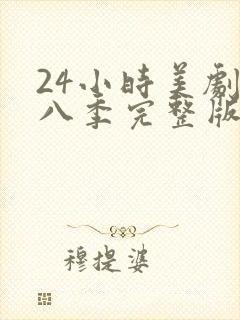 24小時美劇
八季完整版
穆提婆